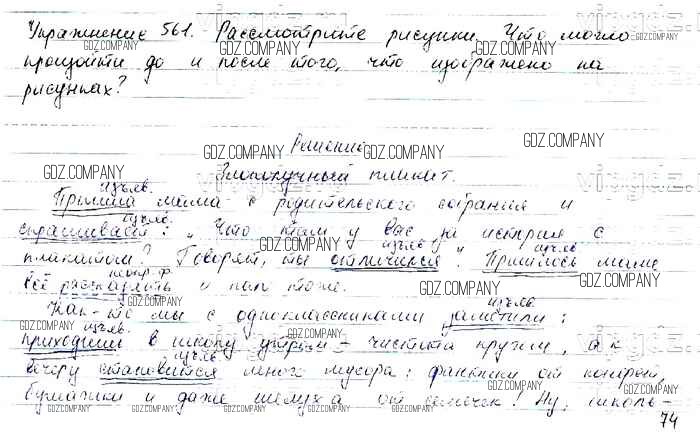 Упражнение 561. Рассмотрите рисунки. Что могло
произойти до и после того, что изображено на
рисунках?
Решение
Злополучный плакат.
изъяв.
Пришла мама с родительского собрания и
изъяв.
спрашивает: „Что там у вас за история с
изъяв. изъяв.
плакатом? Говорят, ты отличился". Пришлось маме
неопр. ф.
всё рассказать и папе тоже.
изъяв.
Как-то мы с одноклассниками заметили:
изъяв.
приходим в школу утром – чистота кругом, а к
изъяв.
вечеру становится много мусора: фантики от конфет,
бумажки и даже шелуха от семечек! Ну, школь-
74
GDZ.COMPANY